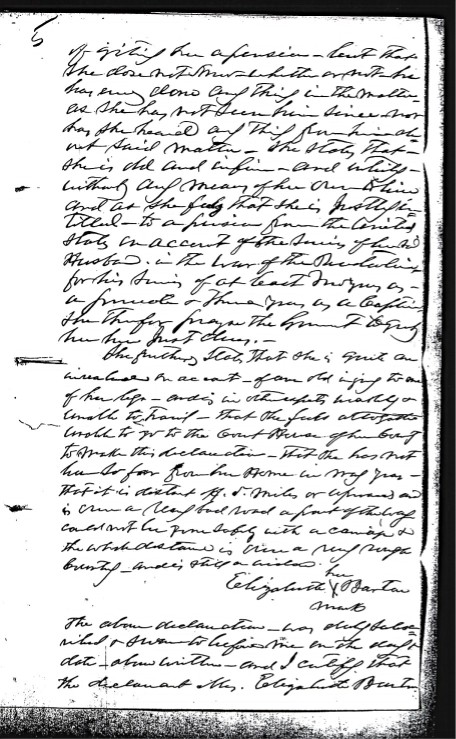 5
of giting her a pension - but that
she dose not know whether or not he
has ever done any thing in the matter
as she has not seen him since nor
has she heard any thing from him ab=
out said matter - She states that
she is old and infirm - and intirly
without any means of her own to live
and as she feels that she is Justly in=
titled - to a pension from the United
States on account of the Servis of her sd
Husband - in the War of the Revolution
for his Servis of at least two years as
a private & three years as a Captain
She therfor prays the Government to grant
her her Just dues. -
She further States that she is quite an
invalid on account - of an old injury to one
of her legs - and is in other respects weakly &
unable to travil - that she feels altogether
unable to go to the Court House of her County
to make this declaration - that she has not
been so far from her Home in many years -
that it is distant 5 miles or upward and
is over a very bad road a part of the way
could not be gone safely with a carriage &
the whole distance is over a very rough
County - and is still a widow
Elizabeth her X Barton
mark
The above declaration - was duly subsc=
ribed & sworn to before me on the day &
date - above written - and I certify that
the declarant Mrs. Elizabeth Barton